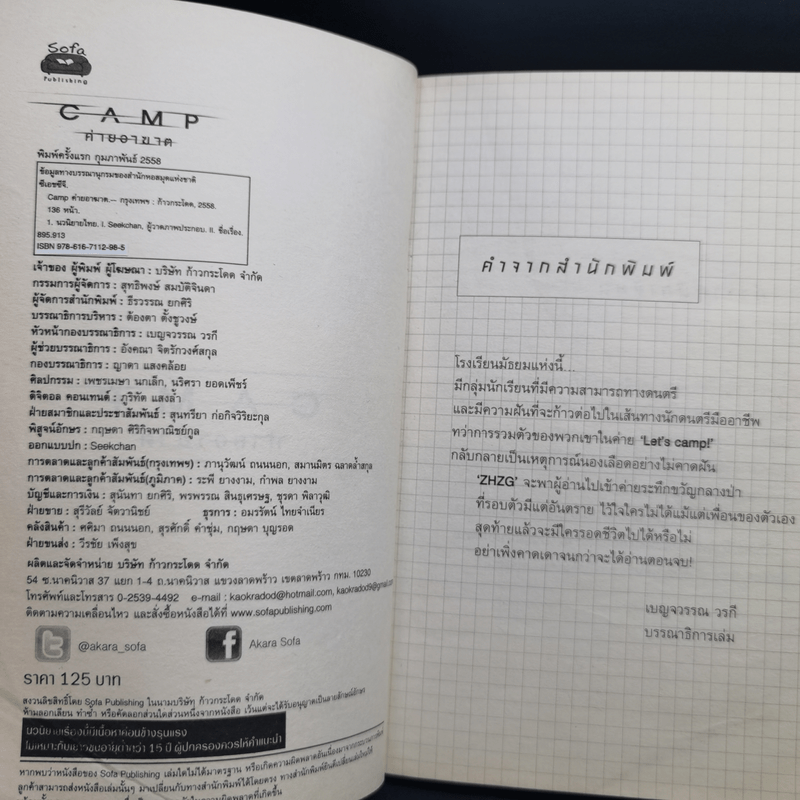 Sofa
Publishing
CAMP
ค่ายอาฆาต
พิมพ์ครั้งแรก กุมภาพันธ์ 2558
ข้อมูลทางบรรณานุกรมของสำนักหอสมุดแห่งชาติ
ซีเอชซีจี.
Camp ค่ายอาฆาต.— กรุงเทพฯ : ก้าวกระโดด, 2558.
136 หน้า.
1. นวนิยายไทย. I. Seekchan, ผู้วาดภาพประกอบ. II. ชื่อเรื่อง.
895.913
ISBN 978-616-7112-98-5
เจ้าของ ผู้พิมพ์ ผู้โฆษณา : บริษัท ก้าวกระโดด จำกัด
กรรมการผู้จัดการ : สุทธิพงษ์ สมบัติจินดา
ผู้จัดการสำนักพิมพ์ : ธีรวรรณ ยกศิริ
บรรณาธิการบริหาร : ต้องตา ตั้งชูวงษ์
หัวหน้ากองบรรณาธิการ : เบญจวรรณ วรกี
ผู้ช่วยบรรณาธิการ : อังคณา จิตรักวงศ์สกุล
กองบรรณาธิการ : ญาดา แสงคล้อย
ศิลปกรรม : เพชรเมษา นกเล็ก, นริศรา ยอดเพ็ชร์
ดิจิตอล คอนเทนต์ : ภูริทัต แสงล้ำ
ฝ่ายสมาชิกและประชาสัมพันธ์ : สุนทรียา ก่อกิจวิริยะกุล
พิสูจน์อักษร : กฤษดา ศิริกิจพาณิชย์กูล
ออกแบบปก : Seekchan
การตลาดและลูกค้าสัมพันธ์(กรุงเทพฯ) : ภานุวัฒน์ ถนนนอก, สมานมิตร ฉลาดล้ำสกุล
การตลาดและลูกค้าสัมพันธ์(ภูมิภาค) : ระพี ยางงาม, กำพล ยางงาม
บัญชีและการเงิน : สุนันทา ยกศิริ, พรพรรณ สินธุเศรษฐ, ชุรดา พิลาวุฒิ
ฝ่ายขาย : สุรีวัลย์ จัตวานิชย์ ธุรการ : อมรรัตน์ ไทยจำเนียร
คลังสินค้า : ศศิมา ถนนนอก, สุรศักดิ์ คำชุ่ม, กฤษดา บุญรอด
ฝ่ายขนส่ง : วีรชัย เพ็งสุข
ผลิตและจัดจำหน่าย บริษัท ก้าวกระโดด จำกัด
54 ซ.นาคนิวาส 37 แยก 1-4 ถ.นาคนิวาส แขวงลาดพร้าว เขตลาดพร้าว กทม. 10230
โทรศัพท์และโทรสาร 0-2539-4492 e-mail : kaokradod@hotmail.com, kaokradod9@gmail.com
ติดตามความเคลื่อนไหว และสั่งซื้อหนังสือได้ที่ www.sofapublishing.com
@akara_sofa
Akara Sofa
ราคา 125 บาท
สงวนลิขสิทธิ์โดย Sofa Publishing ในนามบริษัท ก้าวกระโดด จำกัด
ห้ามลอกเลียน ทำซ้ำ หรือคัดลอกส่วนใดส่วนหนึ่งจากหนังสือ เว้นแต่จะได้รับอนุญาตเป็นลายลักษณ์อักษร
นวนิยายเรื่องนี้มีเนื้อหาค่อนข้างรุนแรง
ไม่เหมาะกับเยาวชนอายุต่ำกว่า 15 ปี ผู้ปกครองควรให้คำแนะนำ
หากพบว่าหนังสือของ Sofa Publishing เล่มใดไม่ได้มาตรฐาน หรือเกิดความผิดพลาดอันเนื่องมาจากกระบวนการ
ลูกค้าสามารถส่งหนังสือเล่มนั้นๆ มาเปลี่ยนกับทางสำนักพิมพ์ได้โดยตรง ทางสำนักพิมพ์ยินดีเปลี่ยนเล่มใหม่ให้
คำจากสำนักพิมพ์
โรงเรียนมัธยมแห่งนี้...
มีกลุ่มนักเรียนที่มีความสามารถทางดนตรี
และมีความฝันที่จะก้าวต่อไปในเส้นทางนักดนตรีมืออาชีพ
ทว่าการรวมตัวของพวกเขาในค่าย ‘Let's camp!’
กลับกลายเป็นเหตุการณ์นองเลือดอย่างไม่คาดฝัน
‘ZHZG’ จะพาผู้อ่านไปเข้าค่ายระทึกขวัญกลางป่า
ที่รอบตัวมีแต่อันตราย ไว้ใจใครไม่ได้แม้แต่เพื่อนของตัวเอง
สุดท้ายแล้วจะมีใครรอดชีวิตไปได้หรือไม่
อย่าเพิ่งคาดเดาจนกว่าจะได้อ่านตอนจบ!
เบญจวรรณ วรกี
บรรณาธิการเล่ม